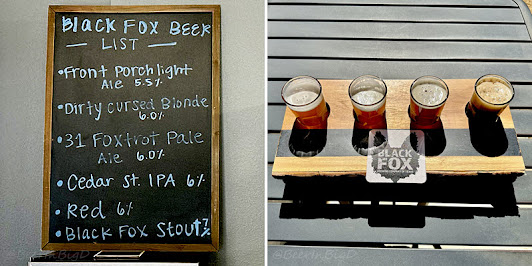 BLACK FOX BEER
LIST
• Front Porchlight
Ale 5.5%
• Dirty cursed Blonde
6.0%
• 31 Foxtrot Pale
Ale 6.0%
• Cedar St. IPA 6%
• Red 6%
• BLACK FOX STOUT 7%
@BeerInBigD
BLACK
FOX
@BeerInBigD